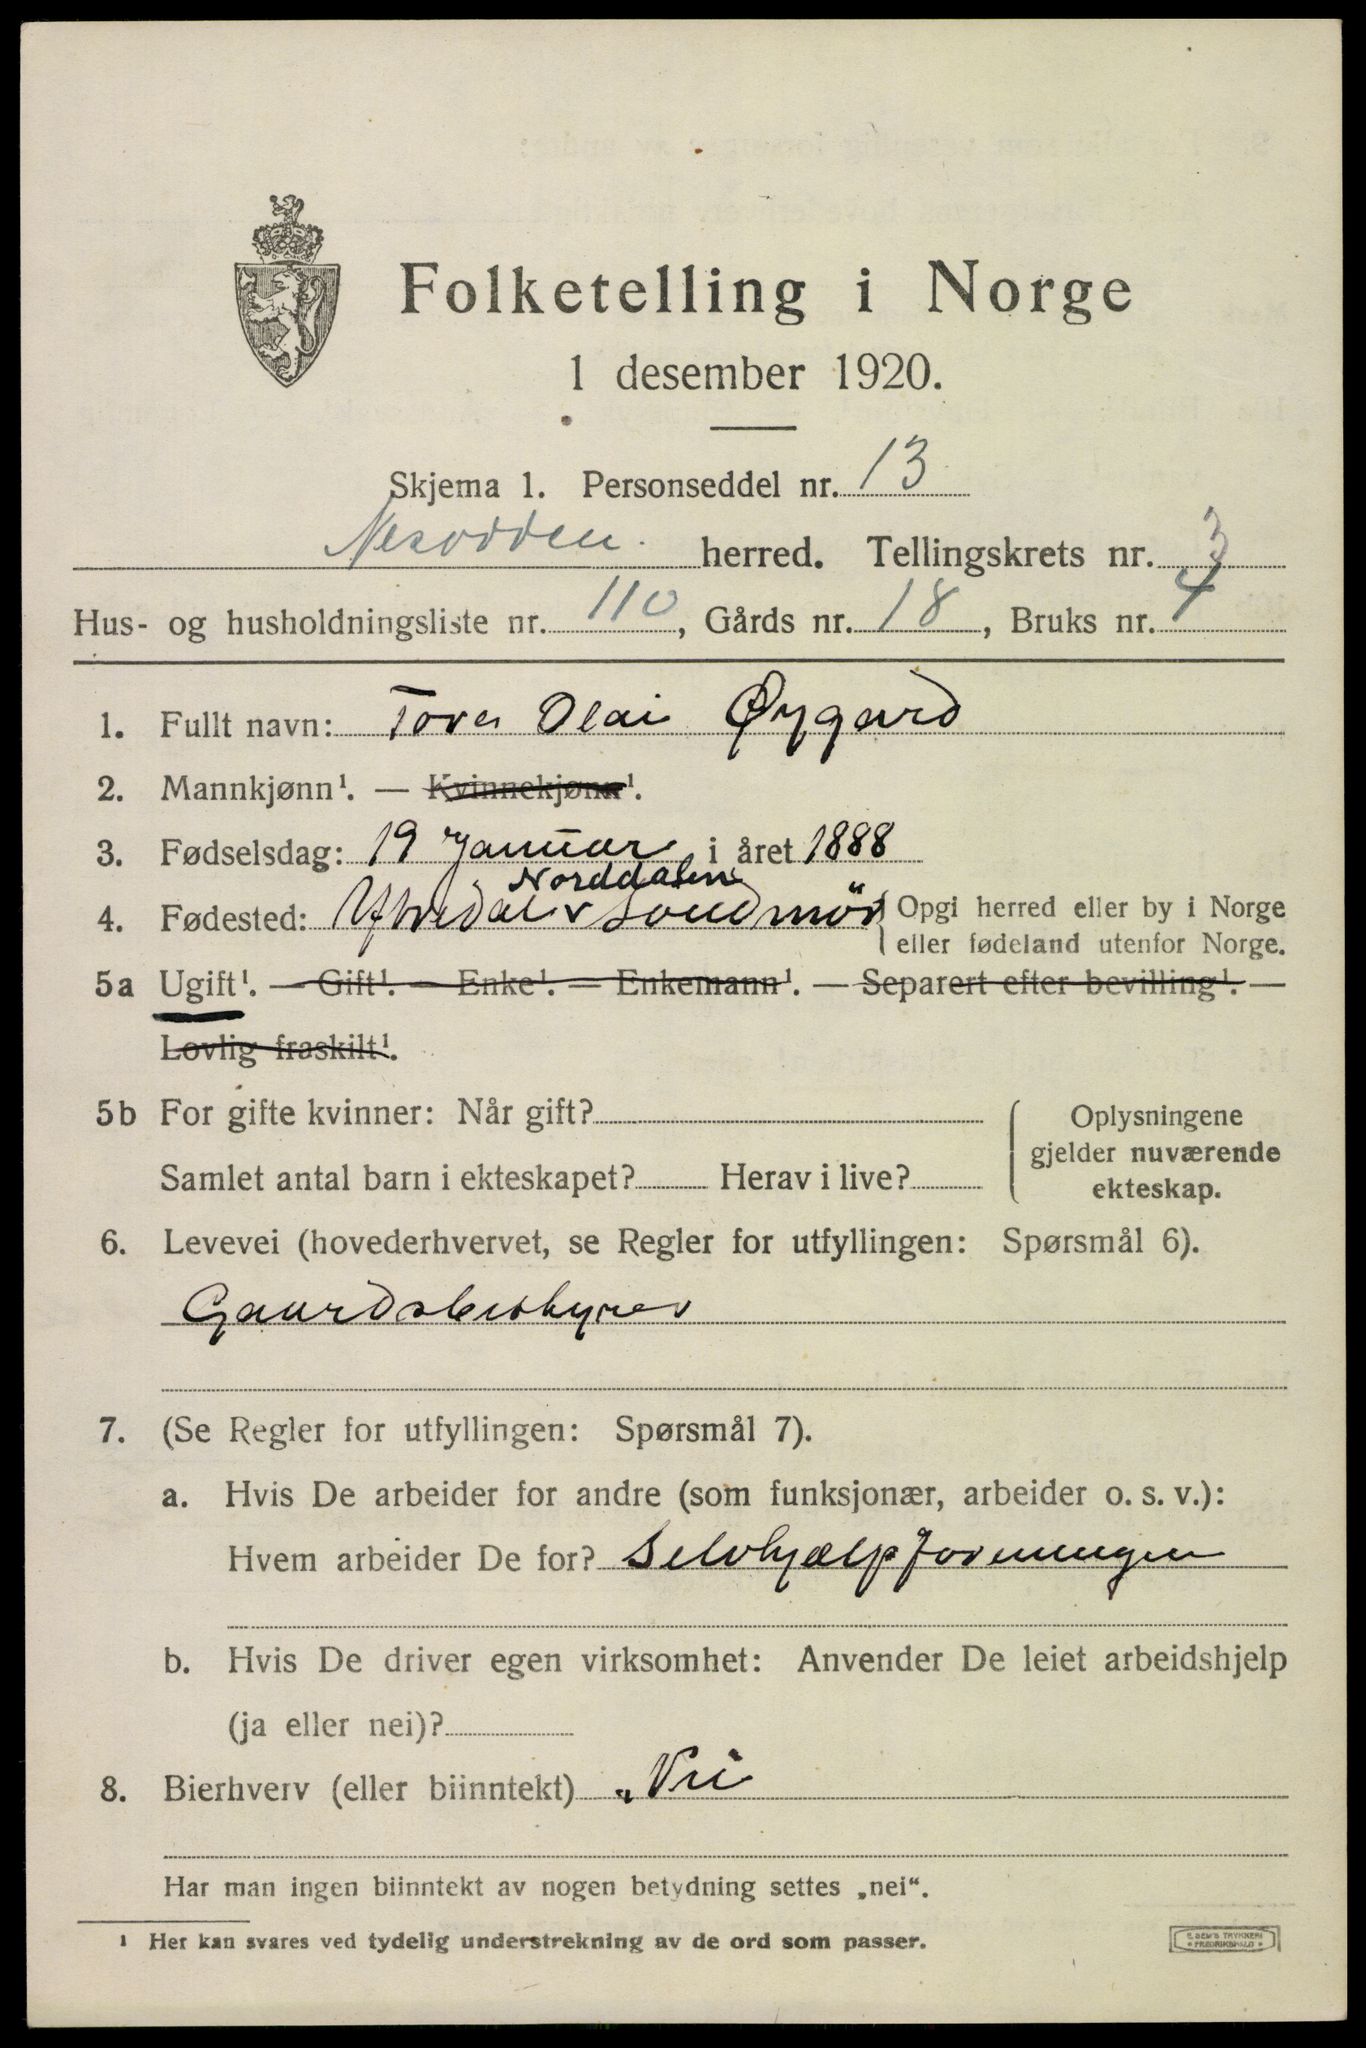 Folketelling i Norge
1 desember 1920.
Skjema 1. Personseddel nr. 13
Nesodden. herred. Tellingskrets nr. 3
Hus- og husholdningsliste nr. 110, Gårds nr. 18, Bruks nr. 4
1. Fullt navn: Tover Olai Øygard
2. Mannkjønn¹. — Kvinnekjønn¹.
3. Fødselsdag: 19 Januar i året 1888
Norddalen
4. Fødested: Søndmør { Opgi herred eller by i Norge
eller fødeland utenfor Norge.
5a Ugift¹. — Gift¹. — Enke¹. — Enkemann¹. — Separert efter bevilling¹. —
Lovlig fraskilt¹.
5b For gifte kvinner: Når gift?
Samlet antal barn i ekteskapet? Herav i live?
Oplysningene
gjelder nuværende
ekteskap.
6. Levevei (hovederhvervet, se Regler for utfyllingen: Spørsmål 6).
Gaardsbestyrer
7. (Se Regler for utfyllingen: Spørsmål 7).
a. Hvis De arbeider for andre (som funksjonær, arbeider o. s. v.):
Hvem arbeider De for? Selvhjælpforeningen
b. Hvis De driver egen virksomhet: Anvender De leiet arbeidshjelp
(ja eller nei)?
8. Bierhverv (eller biinntekt) „Nei
Har man ingen biinntekt av nogen betydning settes „nei“.
¹ Her kan svares ved tydelig understrekning av de ord som passer.
E. SEM'S TRYKKERI
FREDRIKSHALD